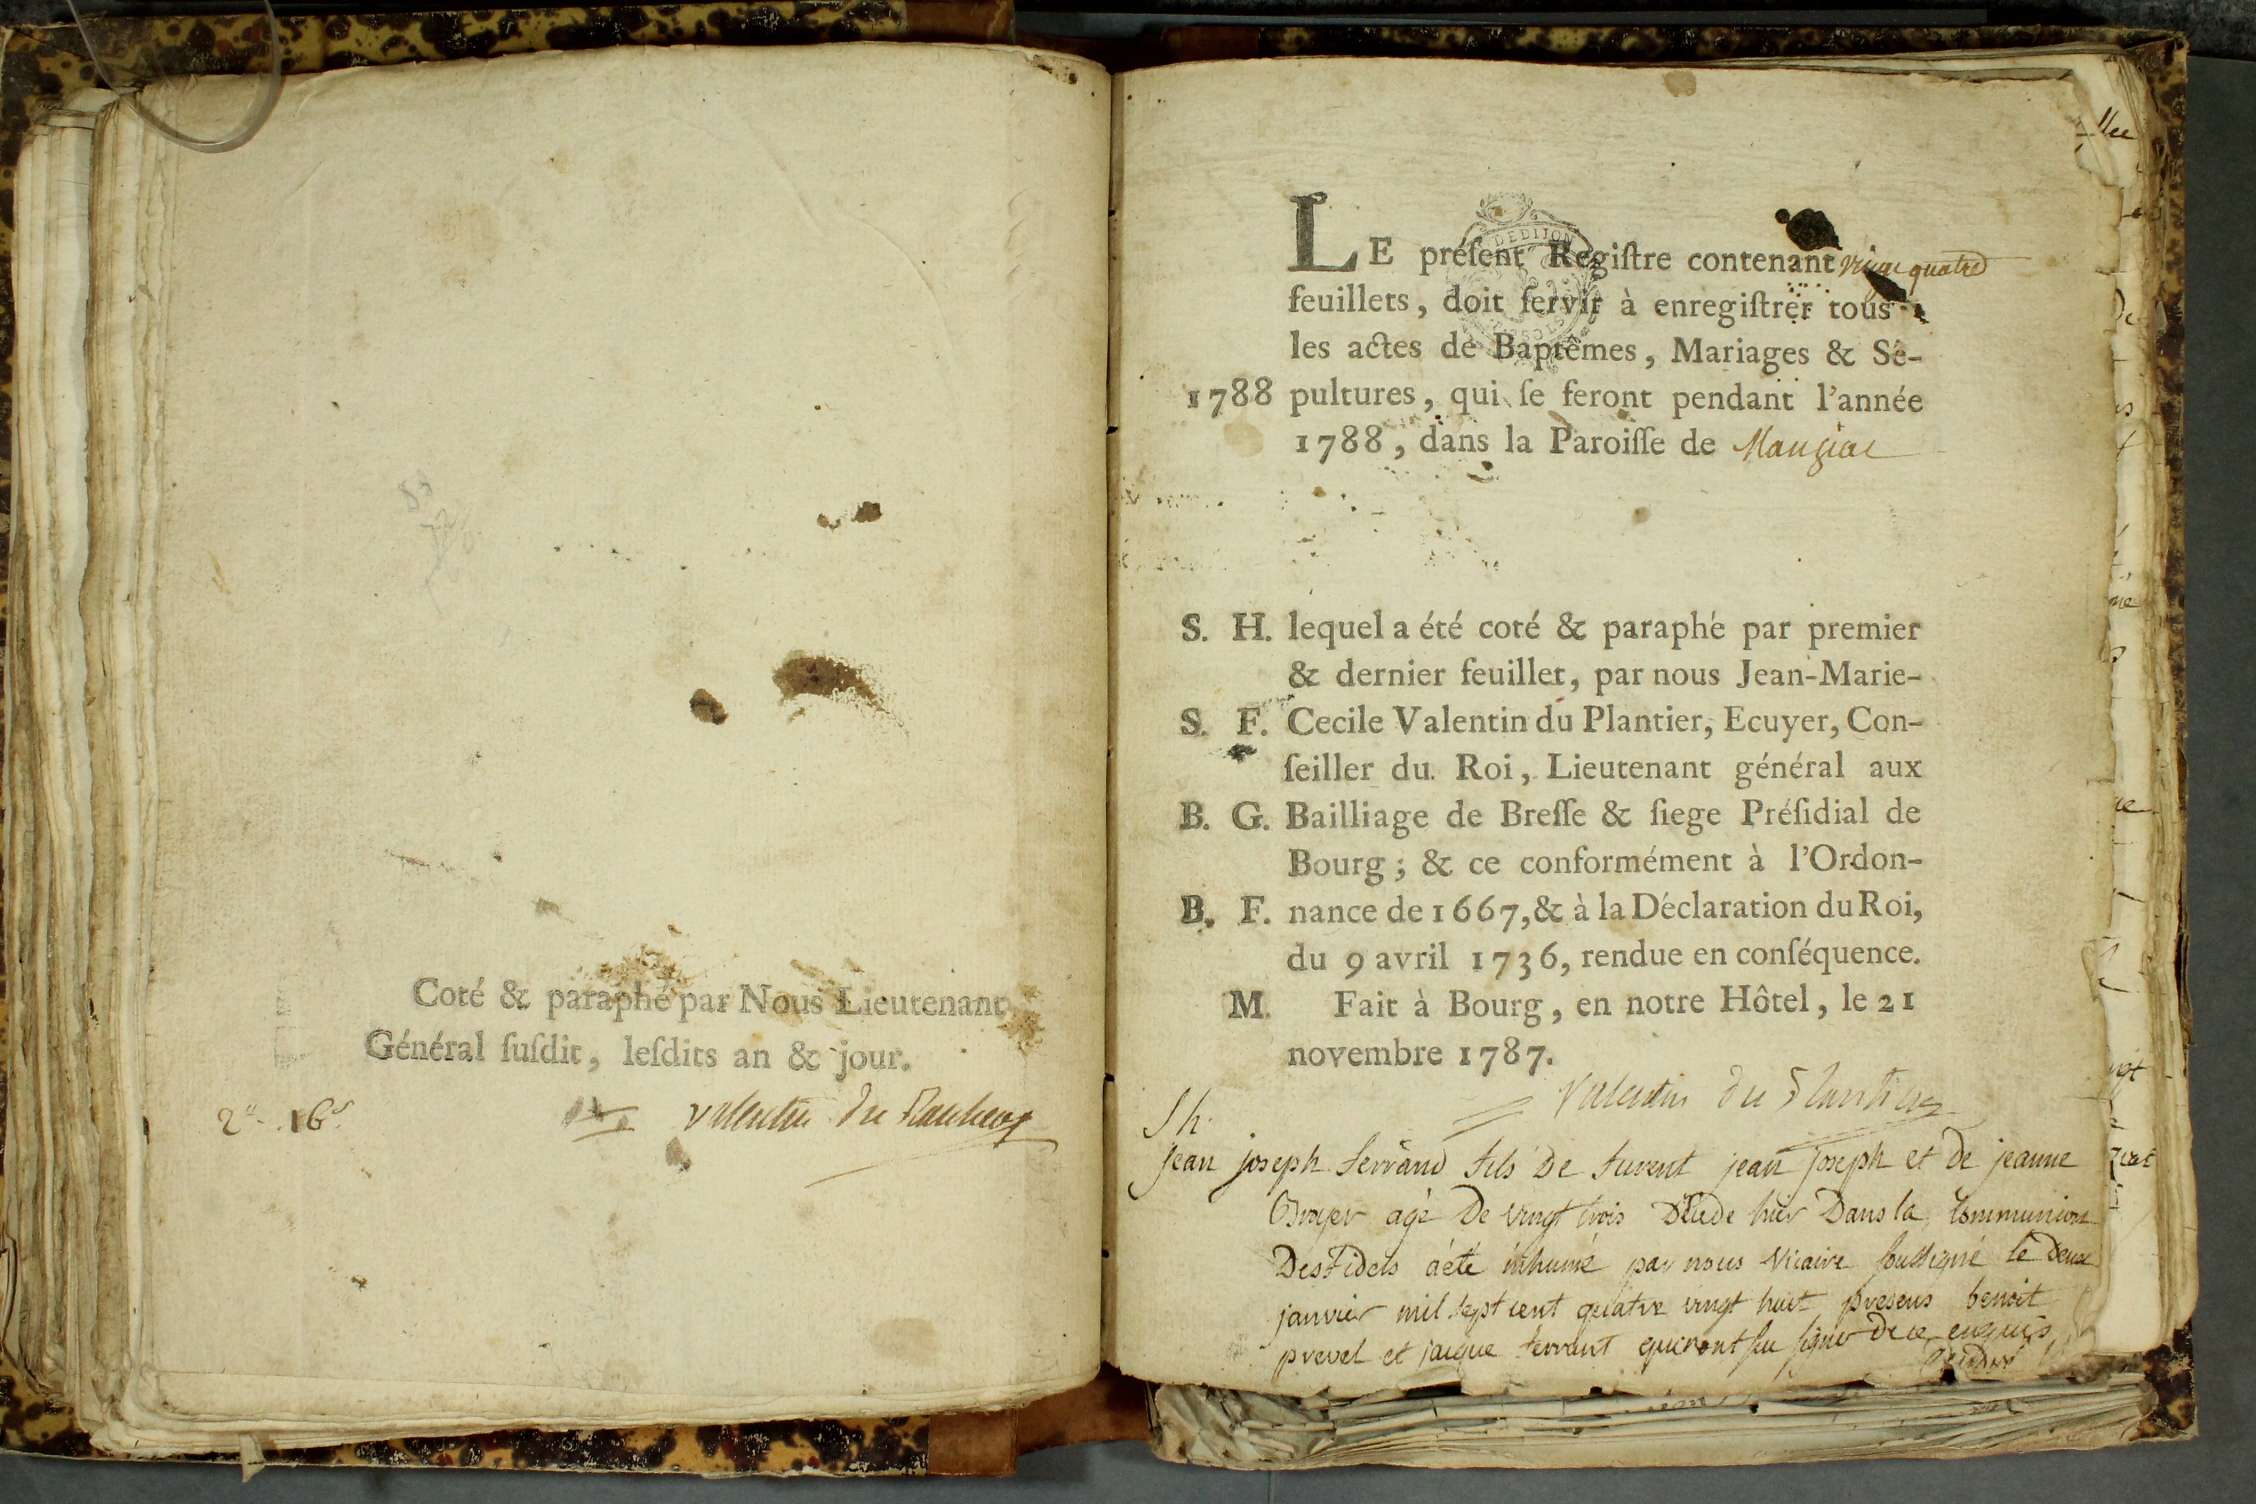 Coté & paraphé par Nous Lieutenant
Général ſuſdit, leſdits an & jour.
2# 16s
Valentin du Plantier
DE DIJON
LE préſent Regiſtre contenant vingt quatre
feuillets, doit ſervir à enregiſtrer tous
les actes de Baptêmes, Mariages & Sé-
1788 pultures, qui ſe feront pendant l'année
1788, dans la Paroiſſe de Manziat
S. H. lequel a été coté & paraphé par premier
& dernier feuillet, par nous Jean-Marie-
S. F. Cecile Valentin du Plantier, Ecuyer, Con-
ſeiller du Roi, Lieutenant général aux
B. G. Bailliage de Breſſe & ſiege Préſidial de
Bourg; & ce conformément à l'Ordon-
B. F. nance de 1667, & à la Déclaration du Roi,
du 9 avril 1736, rendue en conſéquence.
M. Fait à Bourg, en notre Hôtel, le 21
novembre 1787.
Valentin du Plantier
S h.
jean joseph ferrand fils De fuvent jean joseph et De jeanne
Broyer agé De vingt trois Décédé hier Dans la Communion
Des Fidels a été inhumé par nous Vicaire soussigné le Deux
janvier mil sept cent quatre vingt huit presens benoit
prevel et jacque ferrant qui n'ont su signer De ce enquis